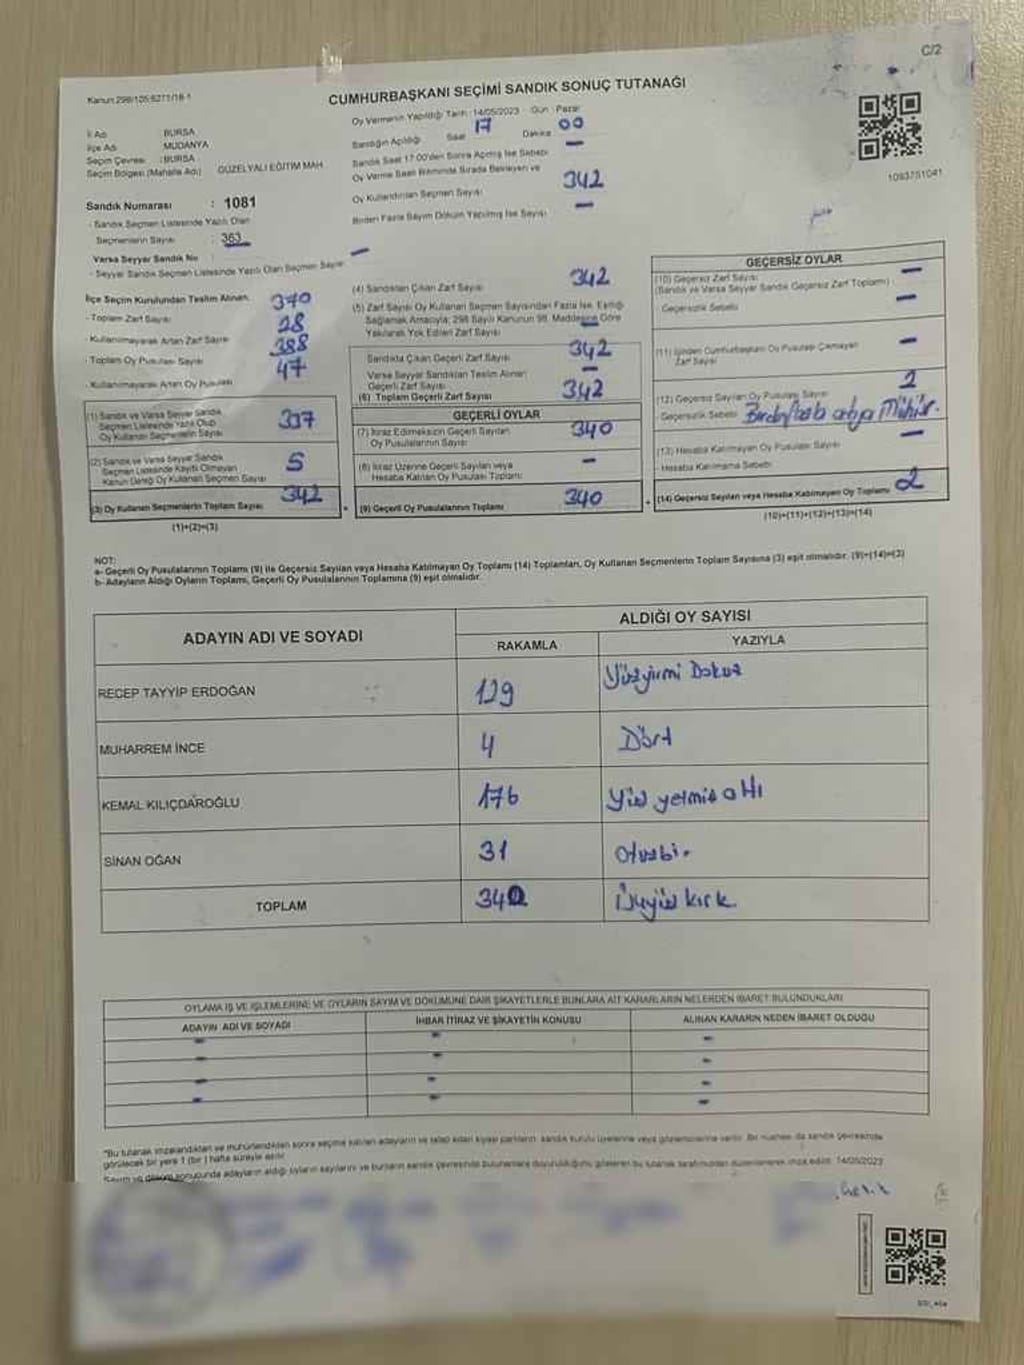 C/2
Kanun:298/105;6271/18-1
CUMHURBAŞKANI SEÇİMİ SANDIK SONUÇ TUTANAĞI
Oy Vermenin Yapıldığı Tarih : 14/05/2023 Gün : Pazar
İl Adı : BURSA
İlçe Adı : MUDANYA
Seçim Çevresi : BURSA
Seçim Bölgesi (Mahalle Adı) : GÜZELYALI EĞİTİM MAH.
Sandığın Açıldığı Saat 17 Dakika 00
Sandık Saat 17:00'den Sonra Açılmış İse Sebebi -
Oy Verme Saati Bitiminde Sırada Bekleyen ve
Oy Kullandırılan Seçmen Sayısı 342
Birden Fazla Sayım Döküm Yapılmış İse Sayısı -
1093751041
Sandık Numarası : 1081
- Sandık Seçmen Listesinde Yazılı Olan
Seçmenlerin Sayısı : 363
Varsa Seyyar Sandık No :
- Seyyar Sandık Seçmen Listesinde Yazılı Olan Seçmen Sayısı -
İlçe Seçim Kurulundan Teslim Alınan
- Toplam Zarf Sayısı 370
- Kullanılmayarak Artan Zarf Sayısı 28
- Toplam Oy Pusulası Sayısı 388
- Kullanılmayarak Artan Oy Pusulası 47
(1) Sandık ve Varsa Seyyar Sandık
Seçmen Listesinde Yazılı Olup
Oy Kullanan Seçmenlerin Sayısı 337
(2) Sandık ve Varsa Seyyar Sandık
Seçmen Listesinde Kayıtlı Olmayan
Kanun Gereği Oy Kullanan Seçmen Sayısı 5
(3) Oy Kullanan Seçmenlerin Toplam Sayısı 342
(1)+(2)=(3)
(4) Sandıktan Çıkan Zarf Sayısı 342
(5) Zarf Sayısı Oy Kullanan Seçmen Sayısından Fazla İse, Eşitliği
Sağlamak Amacıyla; 298 Sayılı Kanunun 98. Maddesine Göre
Yakılarak Yok Edilen Zarf Sayısı -
Sandıkta Çıkan Geçerli Zarf Sayısı 342
Varsa Seyyar Sandıktan Teslim Alınan
Geçerli Zarf Sayısı -
(6) Toplam Geçerli Zarf Sayısı 342
GEÇERLİ OYLAR
(7) İtiraz Edilmeksizin Geçerli Sayılan
Oy Pusulalarının Sayısı 340
(8) İtiraz Üzerine Geçerli Sayılan veya
Hesaba Katılan Oy Pusulası Toplamı -
(9) Geçerli Oy Pusulalarının Toplamı 340
+
GEÇERSİZ OYLAR
(10) Geçersiz Zarf Sayısı
(Sandık ve Varsa Seyyar Sandık Geçersiz Zarf Toplamı) -
- Geçersizlik Sebebi -
(11) İçinden Cumhurbaşkanı Oy Pusulası Çıkmayan
Zarf Sayısı -
(12) Geçersiz Sayılan Oy Pusulası Sayısı 2
- Geçersizlik Sebebi Birden fazla adaya Mühür.
(13) Hesaba Katılmayan Oy Pusulası Sayısı -
- Hesaba Katılmama Sebebi
(14) Geçersiz Sayılan veya Hesaba Katılmayan Oy Toplamı 2
(10)+(11)+(12)+(13)=(14)
NOT:
a- Geçerli Oy Pusulalarının Toplamı (9) ile Geçersiz Sayılan veya Hesaba Katılmayan Oy Toplamı (14) Toplamları, Oy Kullanan Seçmenlerin Toplam Sayısına (3) eşit olmalıdır. (9)+(14)=(3)
b- Adayların Aldığı Oyların Toplamı, Geçerli Oy Pusulalarının Toplamına (9) eşit olmalıdır.
ADAYIN ADI VE SOYADI ALDIĞI OY SAYISI
RAKAMLA YAZIYLA
RECEP TAYYİP ERDOĞAN 129 Yüzyirmi Dokuz
MUHARREM İNCE 4 Dört
KEMAL KILIÇDAROĞLU 176 Yüz yetmiş altı
SİNAN OĞAN 31 Otuzbir
TOPLAM 340 Üçyüz kırk
OYLAMA İŞ VE İŞLEMLERİNE VE OYLARIN SAYIM VE DÖKÜMÜNE DAİR ŞİKAYETLERLE BUNLARA AİT KARARLARIN NELERDEN İBARET BULUNDUKLARI
ADAYIN ADI VE SOYADI İHBAR İTİRAZ VE ŞİKAYETİN KONUSU ALINAN KARARIN NEDEN İBARET OLDUĞU
- - -
- - -
- - -
- - -
"Bu tutanak imzalandıktan ve mühürlendikten sonra seçime katılan adayların ve talep eden siyasi partilerin sandık kurulu üyelerine veya gözlemcilerine verilir. Bir nüshası da sandık çevresinde
görülecek bir yere 1 (bir) hafta süreyle asılır.
Sayım ve döküm sonucunda adayların aldığı oyların sayılarını ve bunların sandık çevresinde bulunanlara duyurulduğunu gösteren bu tutanak tarafımızdan düzenlenerek imza edildi. 14/05/2023